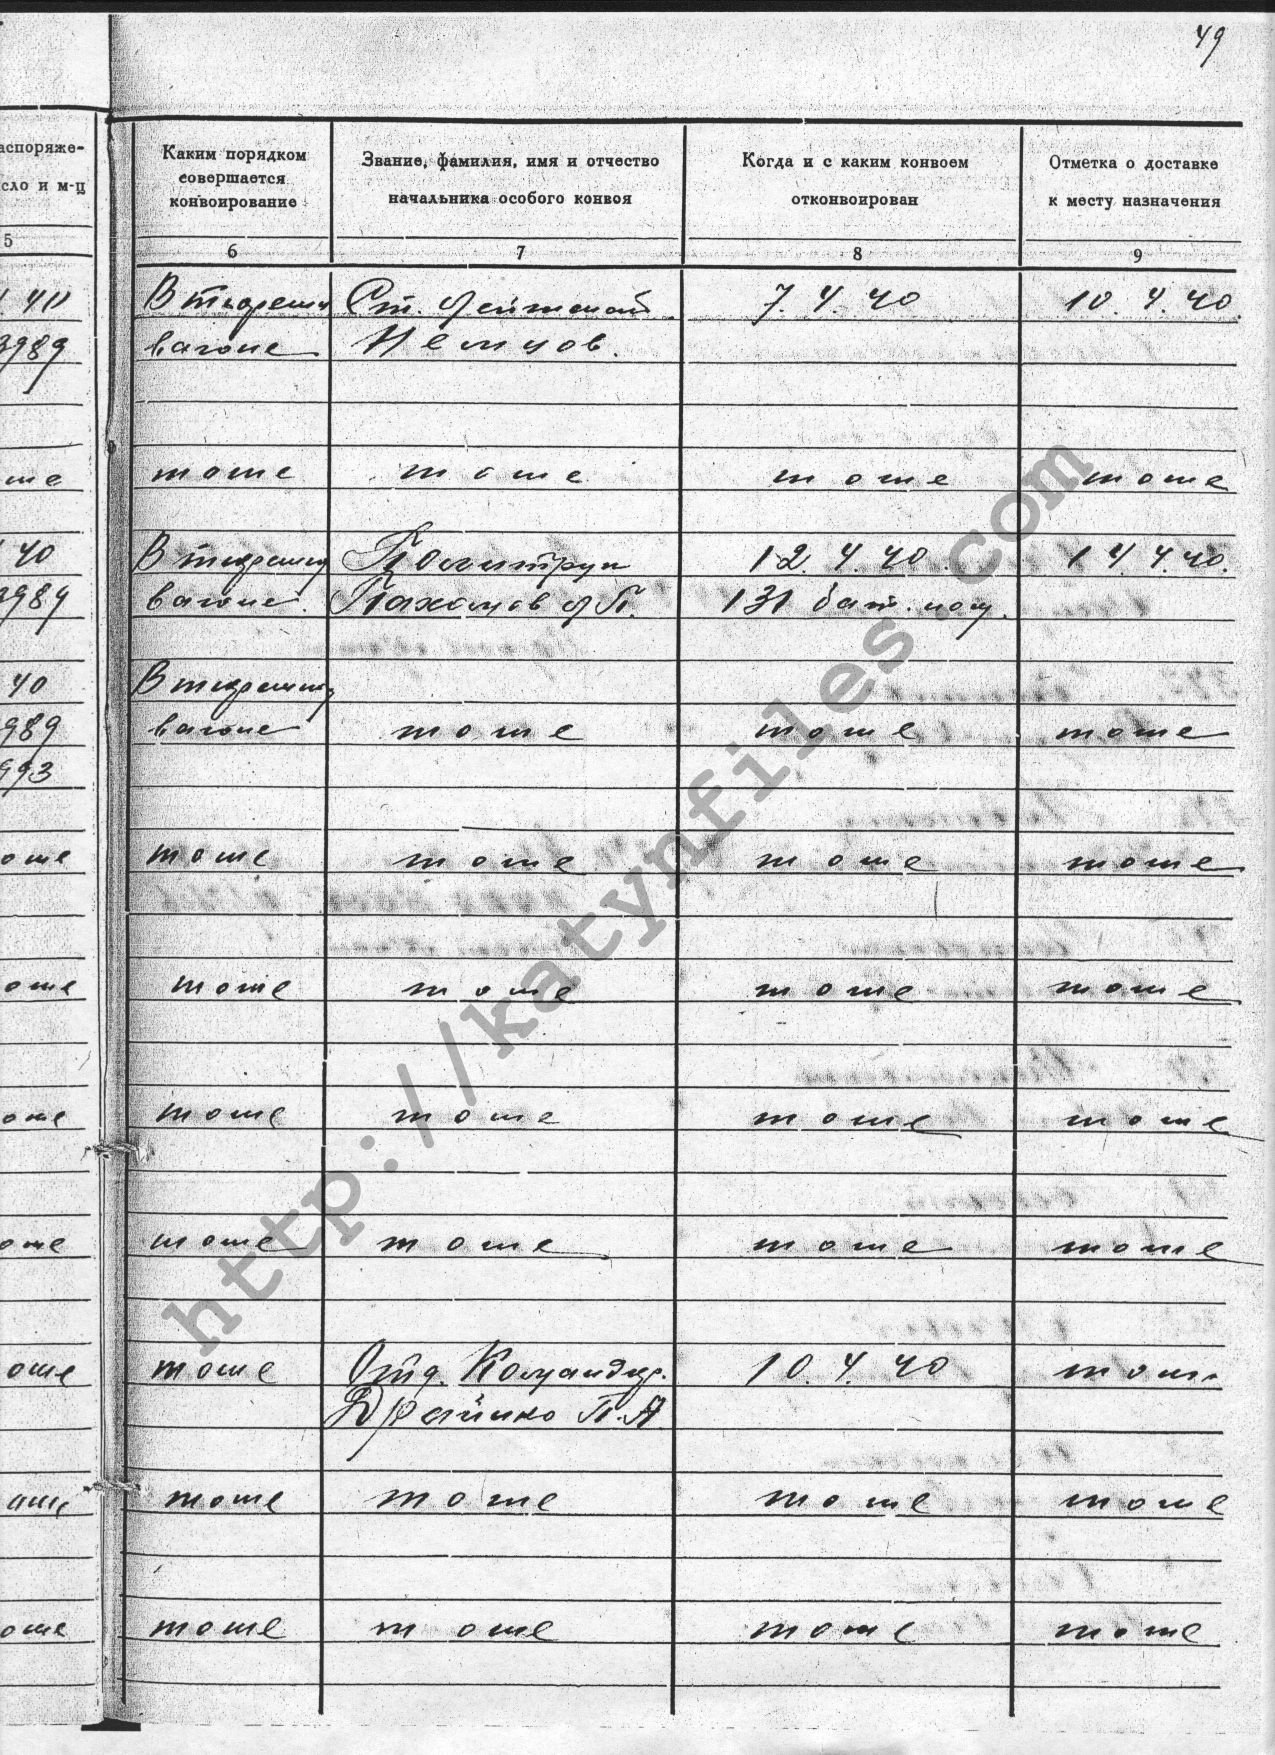 49
аспоряже-
сло и м-ц
5
Каким порядком
совершается
конвоирование
6
Звание, фамилия, имя и отчество
начальника особого конвоя
7
Когда и с каким конвоем
отконвоирован
8
Отметка о доставке
к месту назначения
9
40 В тюремн Ст. лейтенант 7.4.40 10.4.40.
3989 вагоне Немцов.
тоже тоже тоже тоже
40 В тюремну Политрук 12.4.40. 14.4.40.
3989 вагоне. Пахомов 131 бат.
40 В тюремну
989 вагоне тоже тоже тоже
993
оже тоже тоже тоже тоже
оже тоже тоже тоже тоже
оже тоже тоже тоже тоже
оже тоже тоже тоже тоже
оже тоже Отд. Командир. 10.4.40 тоже
П.А
оже тоже тоже тоже тоже
оже тоже тоже тоже тоже
http://katynfiles.com